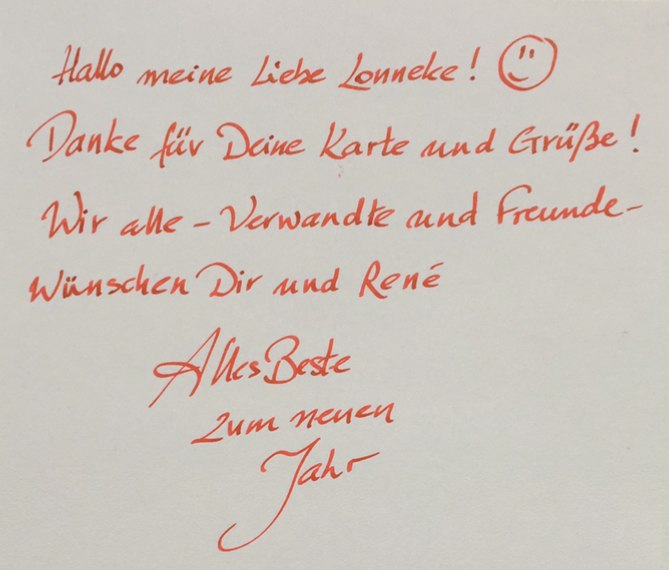 Hallo meine Liebe Lonneke!
Danke für Deine Karte und Grüße!
Wir alle - Verwandte und Freunde-
Wünschen Dir und René
Alles Beste
zum neuen
Jahr